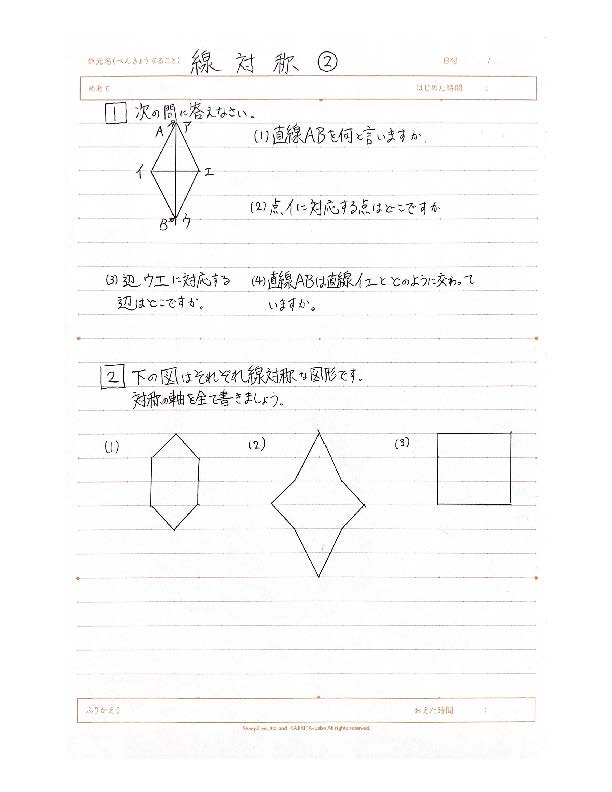 単元名(べんきょうすること) 線対称② 日付 /
めあて はじめた時間 :
1 次の問に答えなさい。
A ア
(1)直線ABを何と言いますか
イ エ
(2)点イに対応する点はどこですか
B ウ
(3)辺ウエに対応する
辺はどこですか。
(4)直線ABは直線イエとどのように交わって
いますか。
2 下の図はそれぞれ線対称な図形です。
対称の軸を全て書きましょう。
(1) (2) (3)
ふりかえり おえた時間 :
All rights reserved.